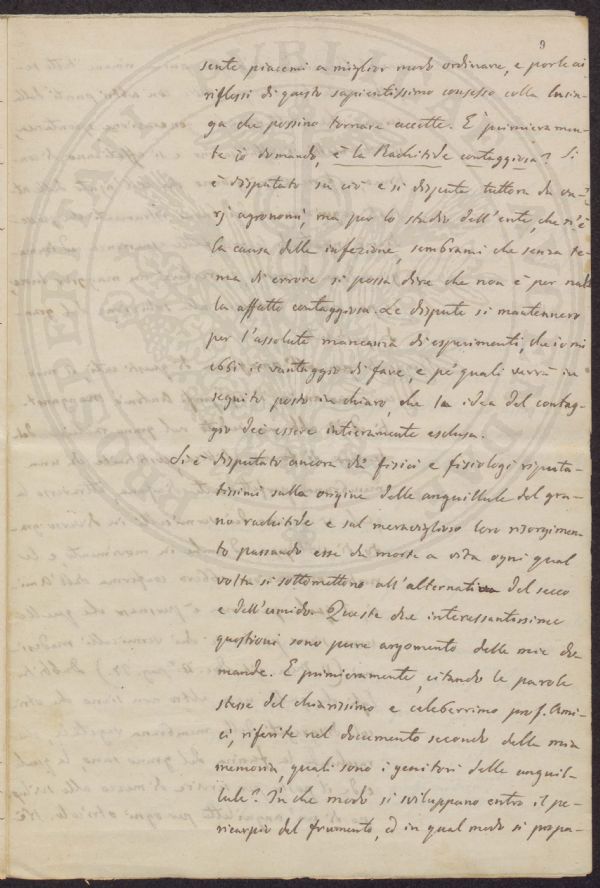 9
sente piacemi a miglior modo ordinare, e porle ai
riflessi di questo sapientissimo consesso colla lusin-
ga che possino tornare accette. E primieramen-
te io domando, è la Rachitide contaggiosa? Si
è disputato su ciò e si disputa tuttora da va-
rj agronomi, ma per lo studio dell'ente, che n'è
la causa della infezione, sembrami che senza te-
ma di errore si possa dire che non è per nul-
la affatto contaggiosa. Le dispute si mantennero
per l'assoluta mancanza di esperimenti, che io mi
ebbi il vantaggio di fare, e pe' quali verrà in
seguito posto in chiaro, che la idea del contag-
gio dei essere intieramente esclusa.
Si è disputato ancora da fisici e fisiologi riputa-
tissimi sulla origine delle anguillule del gra-
no rachitide e sul meraviglioso loro risorgimen-
to passando esse da morte a vita ogni qual
volta si sottomettono all'alternativa del secco
e dell'umido. Queste due interessantissime
questioni sono pure argomento delle mie do-
mande. E primieramente, citando le parole
stesse del chiarissimo e celeberrimo prof. Ami-
ci, riferite nel documento secondo della mia
memoria, quali sono i genitori delle anguil-
lule? In che modo si sviluppano entro il pe-
ricarpio del frumento, ed in qual modo si propa-